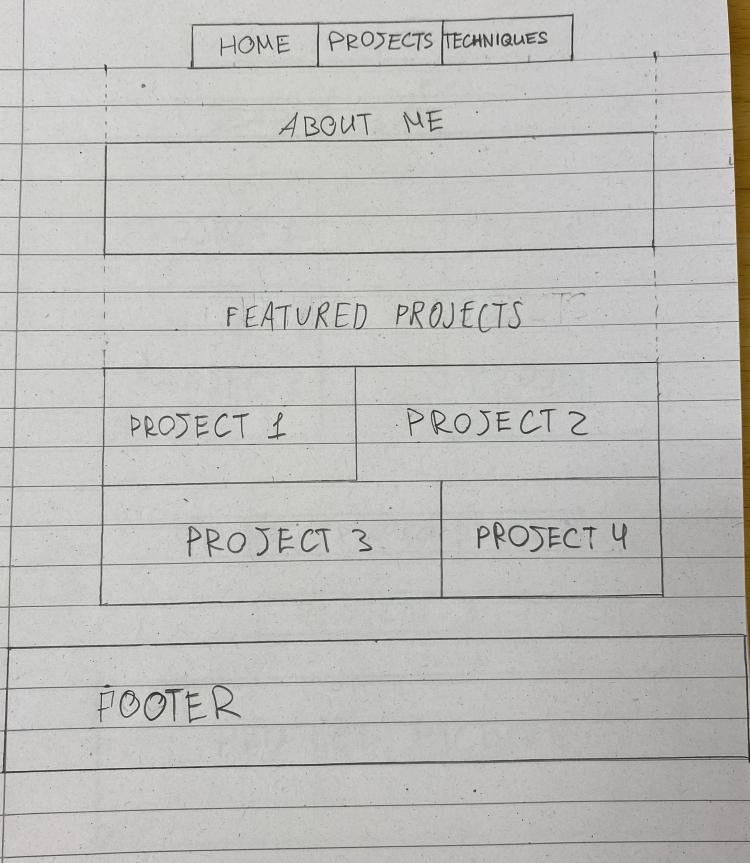 HOME PROJECTS TECHNIQUES
ABOUT ME
FEATURED PROJECTS
PROJECT 1 PROJECT 2
PROJECT 3 PROJECT 4
FOOTER